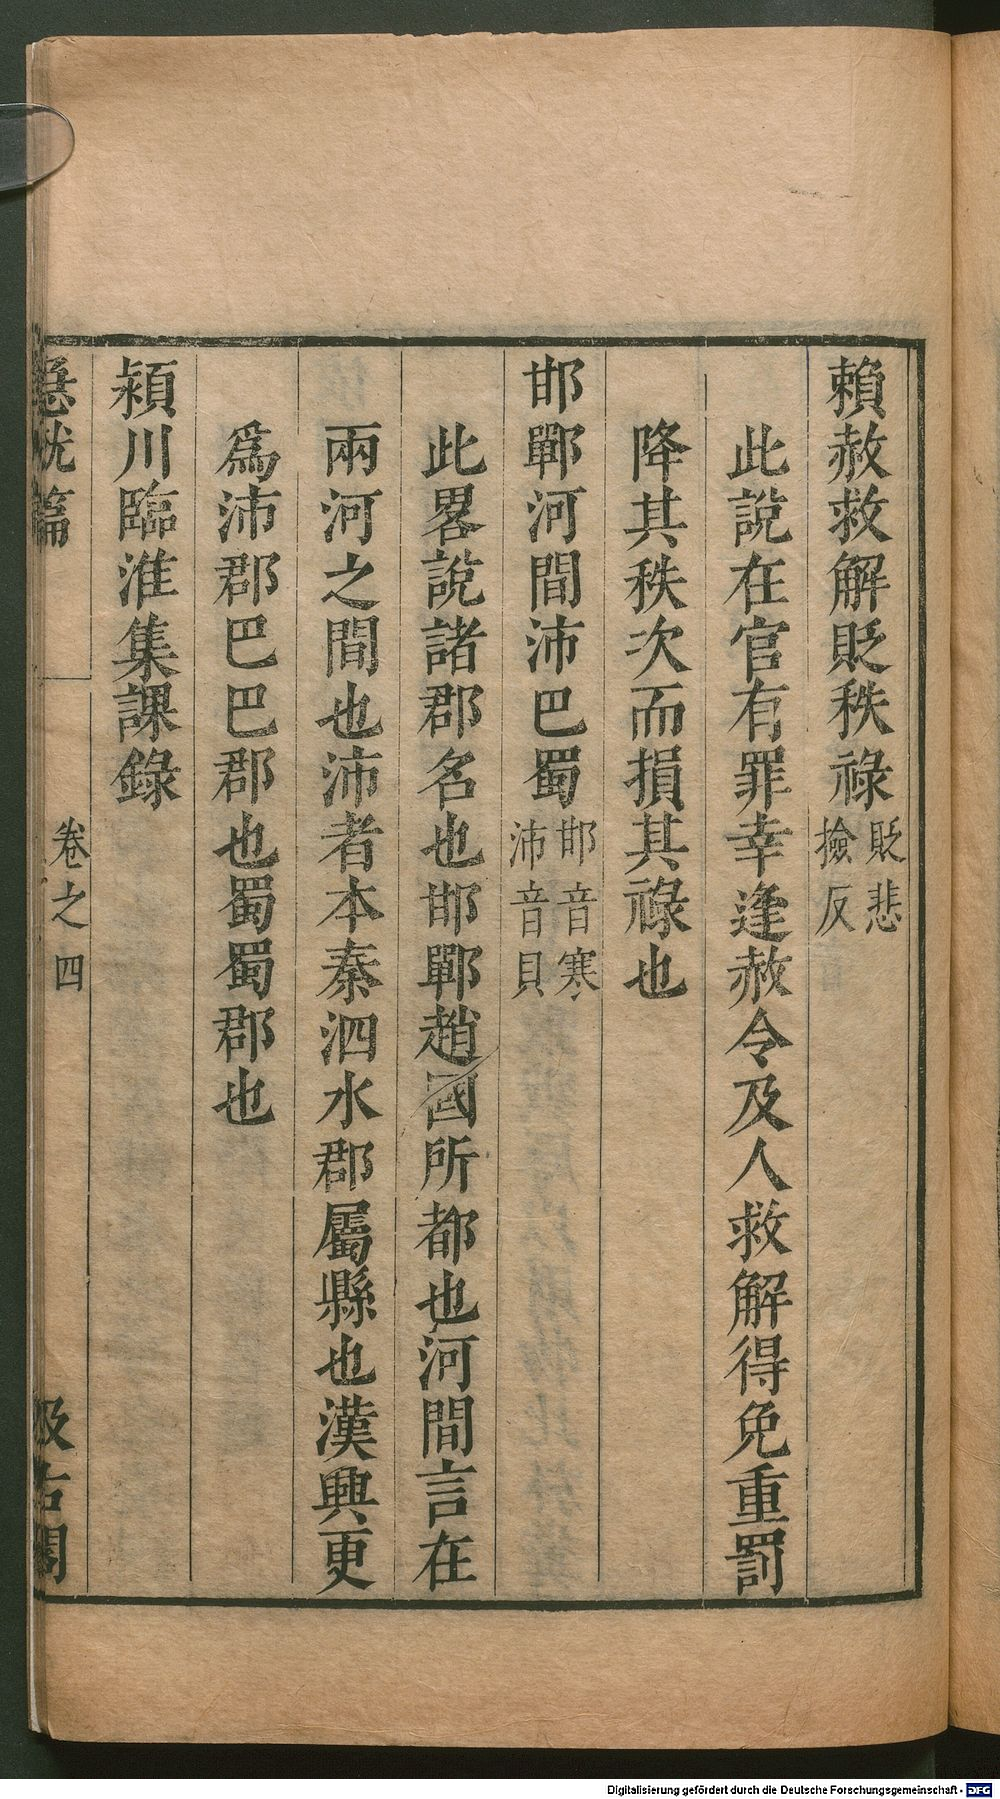 賴赦救解貶秩祿貶悲撿反
此說在官有罪幸逢赦令及人救解得免重罰
降其秩次而損其祿也
邯鄲河間沛巴蜀邯音寒沛音貝
此畧說諸郡名也邯鄲趙國所都也河間言在
兩河之間也沛者本秦泗水郡屬縣也漢興更
爲沛郡巴巴郡也蜀蜀郡也
潁川臨淮集課錄
急就篇 卷之四 汲古閣
Digitalisierung gefördert durch die Deutsche Forschungsgemeinschaft - DFG